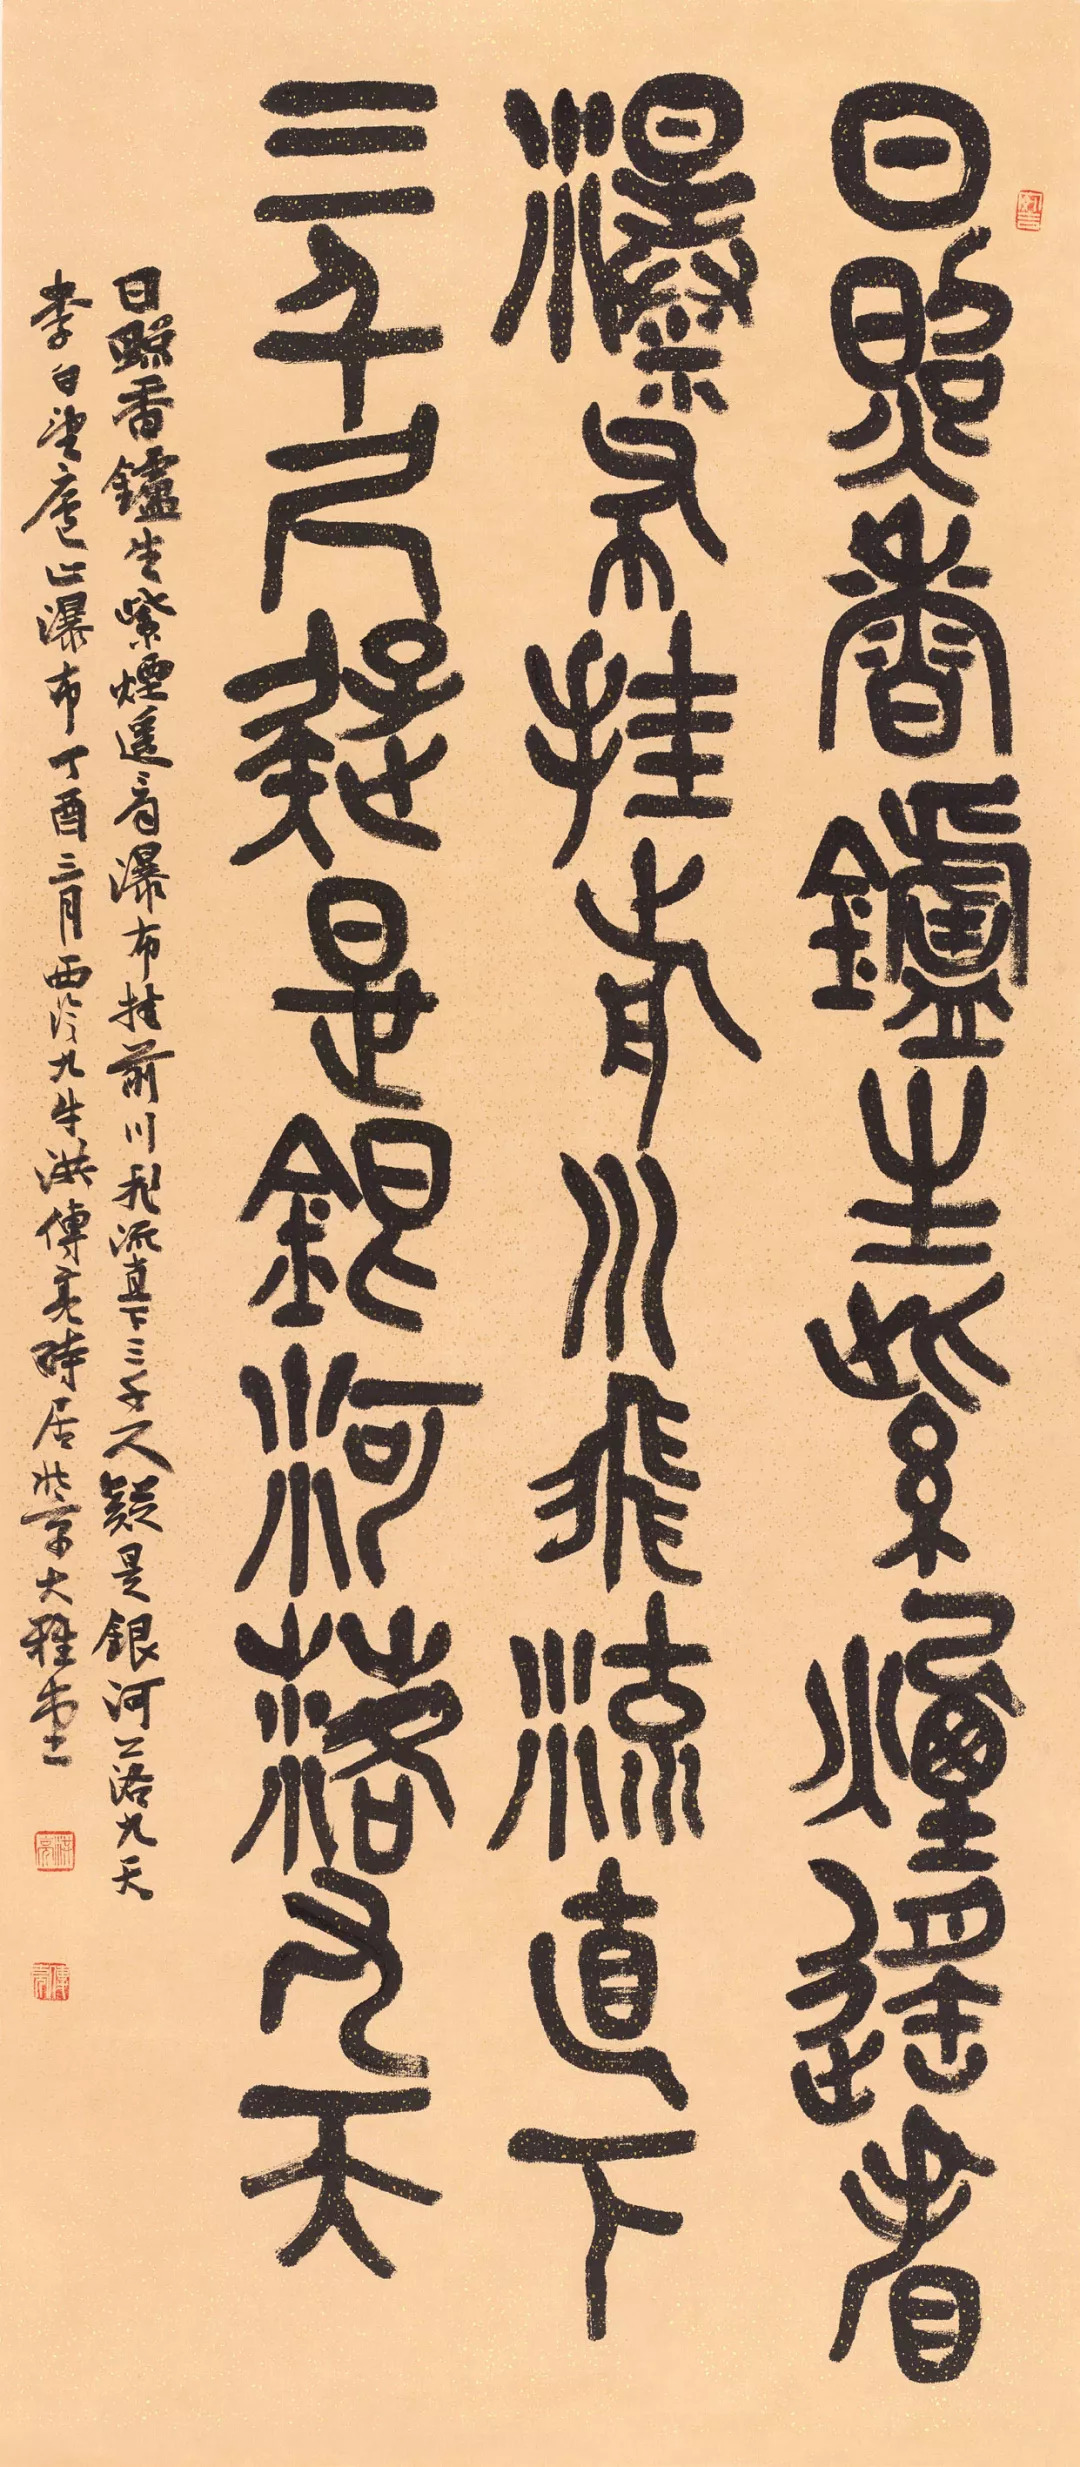 日照香鑪生紫煙遙看
瀑布挂前川飛流直下
三千尺疑是銀河落九天
日照香鑪生紫煙遙看瀑布挂前川飛流直下三千尺疑是銀河落九天
李白望廬山瀑布丁酉三月西泠九牛洪傳亮時居北京大雅堂